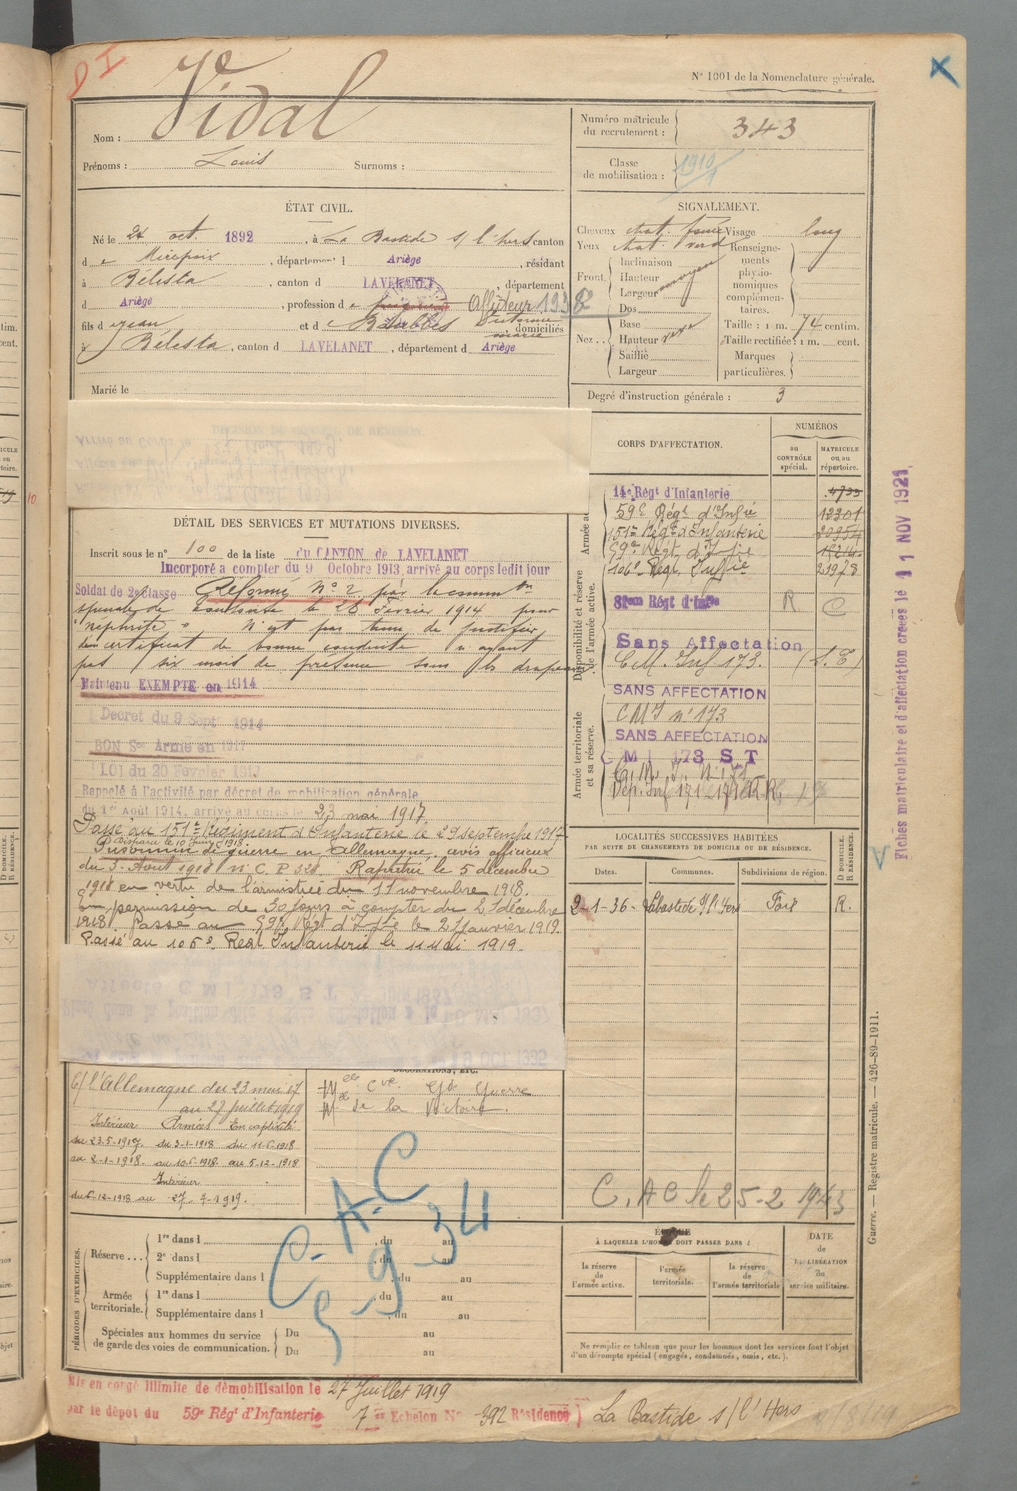 D I
N° 1001 de la Nomenclature générale.
Nom : Vidal
Prénoms : Louis Surnoms :
Numéro matricule du recrutement : 343
Classe de mobilisation : 1910
ÉTAT CIVIL.
Né le oct. 1892, à La Bastide s/ l'hers canton
d e Mirepoix, département d Ariège, résidant
à Bélesta, canton d LAVELANET, département
d Ariège, profession d e Affuteur 1938
fils d e Jean et d e Victorine Marie, domiciliés
à Bélesta, canton d LAVELANET, département d Ariège
Marié le
SIGNALEMENT.
Cheveux chat. foncé Visage long
Yeux chat. verd
Front Inclinaison
Hauteur moyen
Largeur
Nez Dos
Base
Hauteur
Saillie
Largeur
Renseignements physionomiques complémentaires.
Taille : 1 m. 74 centim.
Taille rectifiée : 1 m. cent.
Marques particulières.
Degré d'instruction générale : 3
DÉTAIL DES SERVICES ET MUTATIONS DIVERSES.
Inscrit sous le n° 100 de la liste du CANTON de LAVELANET
Incorporé à compter du 9 Octobre 1913, arrivé au corps ledit jour
Soldat de 2e classe Réformé N° 2 par la comm on
spéciale de le 26 Février 1914 pour
"néphrite" N'est pas tenu de justifier
du certificat de bonne conduite n'ayant
pas six mois de présence sous les drapeaux
Maintenu EXEMPTÉ en 1914
Décret du 9 Sept 1914
BON Sce Armé en 1917
LOI du 20 Février 1917
Rappelé à l'activité par décret de mobilisation générale
du 1er Août 1914, arrivé au corps le 23 mai 1917.
Passé au 151e Régiment d'Infanterie le 29 septembre 1917
Disparu le 10 Juin 1918
Prisonnier de guerre en Allemagne, avis officieux
du 3 Août 1918 n° C. P 328. Rapatrié le 5 décembre
1918 en vertu de l'armistice du 11 novembre 1918.
En permission de 30 jours à compter du 21 décembre
1918. Passé au 59e Régt d'Infie le 21 janvier 1919.
Passé au 106e Regt Infanterie le 11 Mai 1919.
CORPS D'AFFECTATION.
NUMÉROS
au CONTRÔLE spécial.
MATRICULE ou au répertoire.
14e Régt d'Infanterie
59e Régt d'Infie 12301
151e Régt d'Infanterie 20954
59e Régt d'Infie
106e Régt Infie 23978
81eme Régt d'Infie R C
Sans Affectation
C.M. Inf 173.
SANS AFFECTATION
CMI n° 173
SANS AFFECTATION
C M I 173 S T
Dép. Inf 171
Disponibilité et réserve de l'armée active.
Armée territoriale et sa réserve.
LOCALITÉS SUCCESSIVES HABITÉES
PAR SUITE DE CHANGEMENTS DE DOMICILE OU DE RÉSIDENCE.
Dates. Communes. Subdivisions de région. D DOMICILE. R RÉSIDENCE.
2-1-36 Labastide S/l'Hers Foix R.
C/ l'Allemagne du 23 mai 17
au 27 juillet 1919
Intérieur Armées En captivité
du 23.5-1917. du 3-1-1918 du 11-6-1918
au 2-1-1918. au 10-6-1918. au 5-12-1918
Intérieur
du 6-12-1918 au 27-7-1919.
DÉCORATIONS, ETC.
Mlle Cve Gde Guerre
Mlle de la Victoire.
C. A C le 25-2 1943
C-A-C
5-9-34
PÉRIODES D'EXERCICES.
Réserve 1re dans l , du au
2e dans l , du au
Supplémentaire dans l , du au
Armée territoriale. 1re dans l , du au
Supplémentaire dans l , du au
Spéciales aux hommes du service de garde des voies de communication. Du au
Du au
ÉPOQUE
À LAQUELLE L'HOMME DOIT PASSER DANS :
la réserve de l'armée active.
l'armée territoriale.
la réserve de l'armée territoriale
DATE de LA LIBÉRATION du service militaire.
Ne remplir ce tableau que pour les hommes dont les services font l'objet
d'un décompte spécial (engagés, condamnés, omis, etc.).
Mis en congé illimité de démobilisation le 27 Juillet 1919
par le dépôt du 59e Régt d'Infanterie 7 e Echelon N° 392 Résidence La Bastide s/ l'Hers
Fiches matriculaire et d'affectation créées le 11 NOV 1921
Guerre. — Registre matricule. — 426-89-1911.